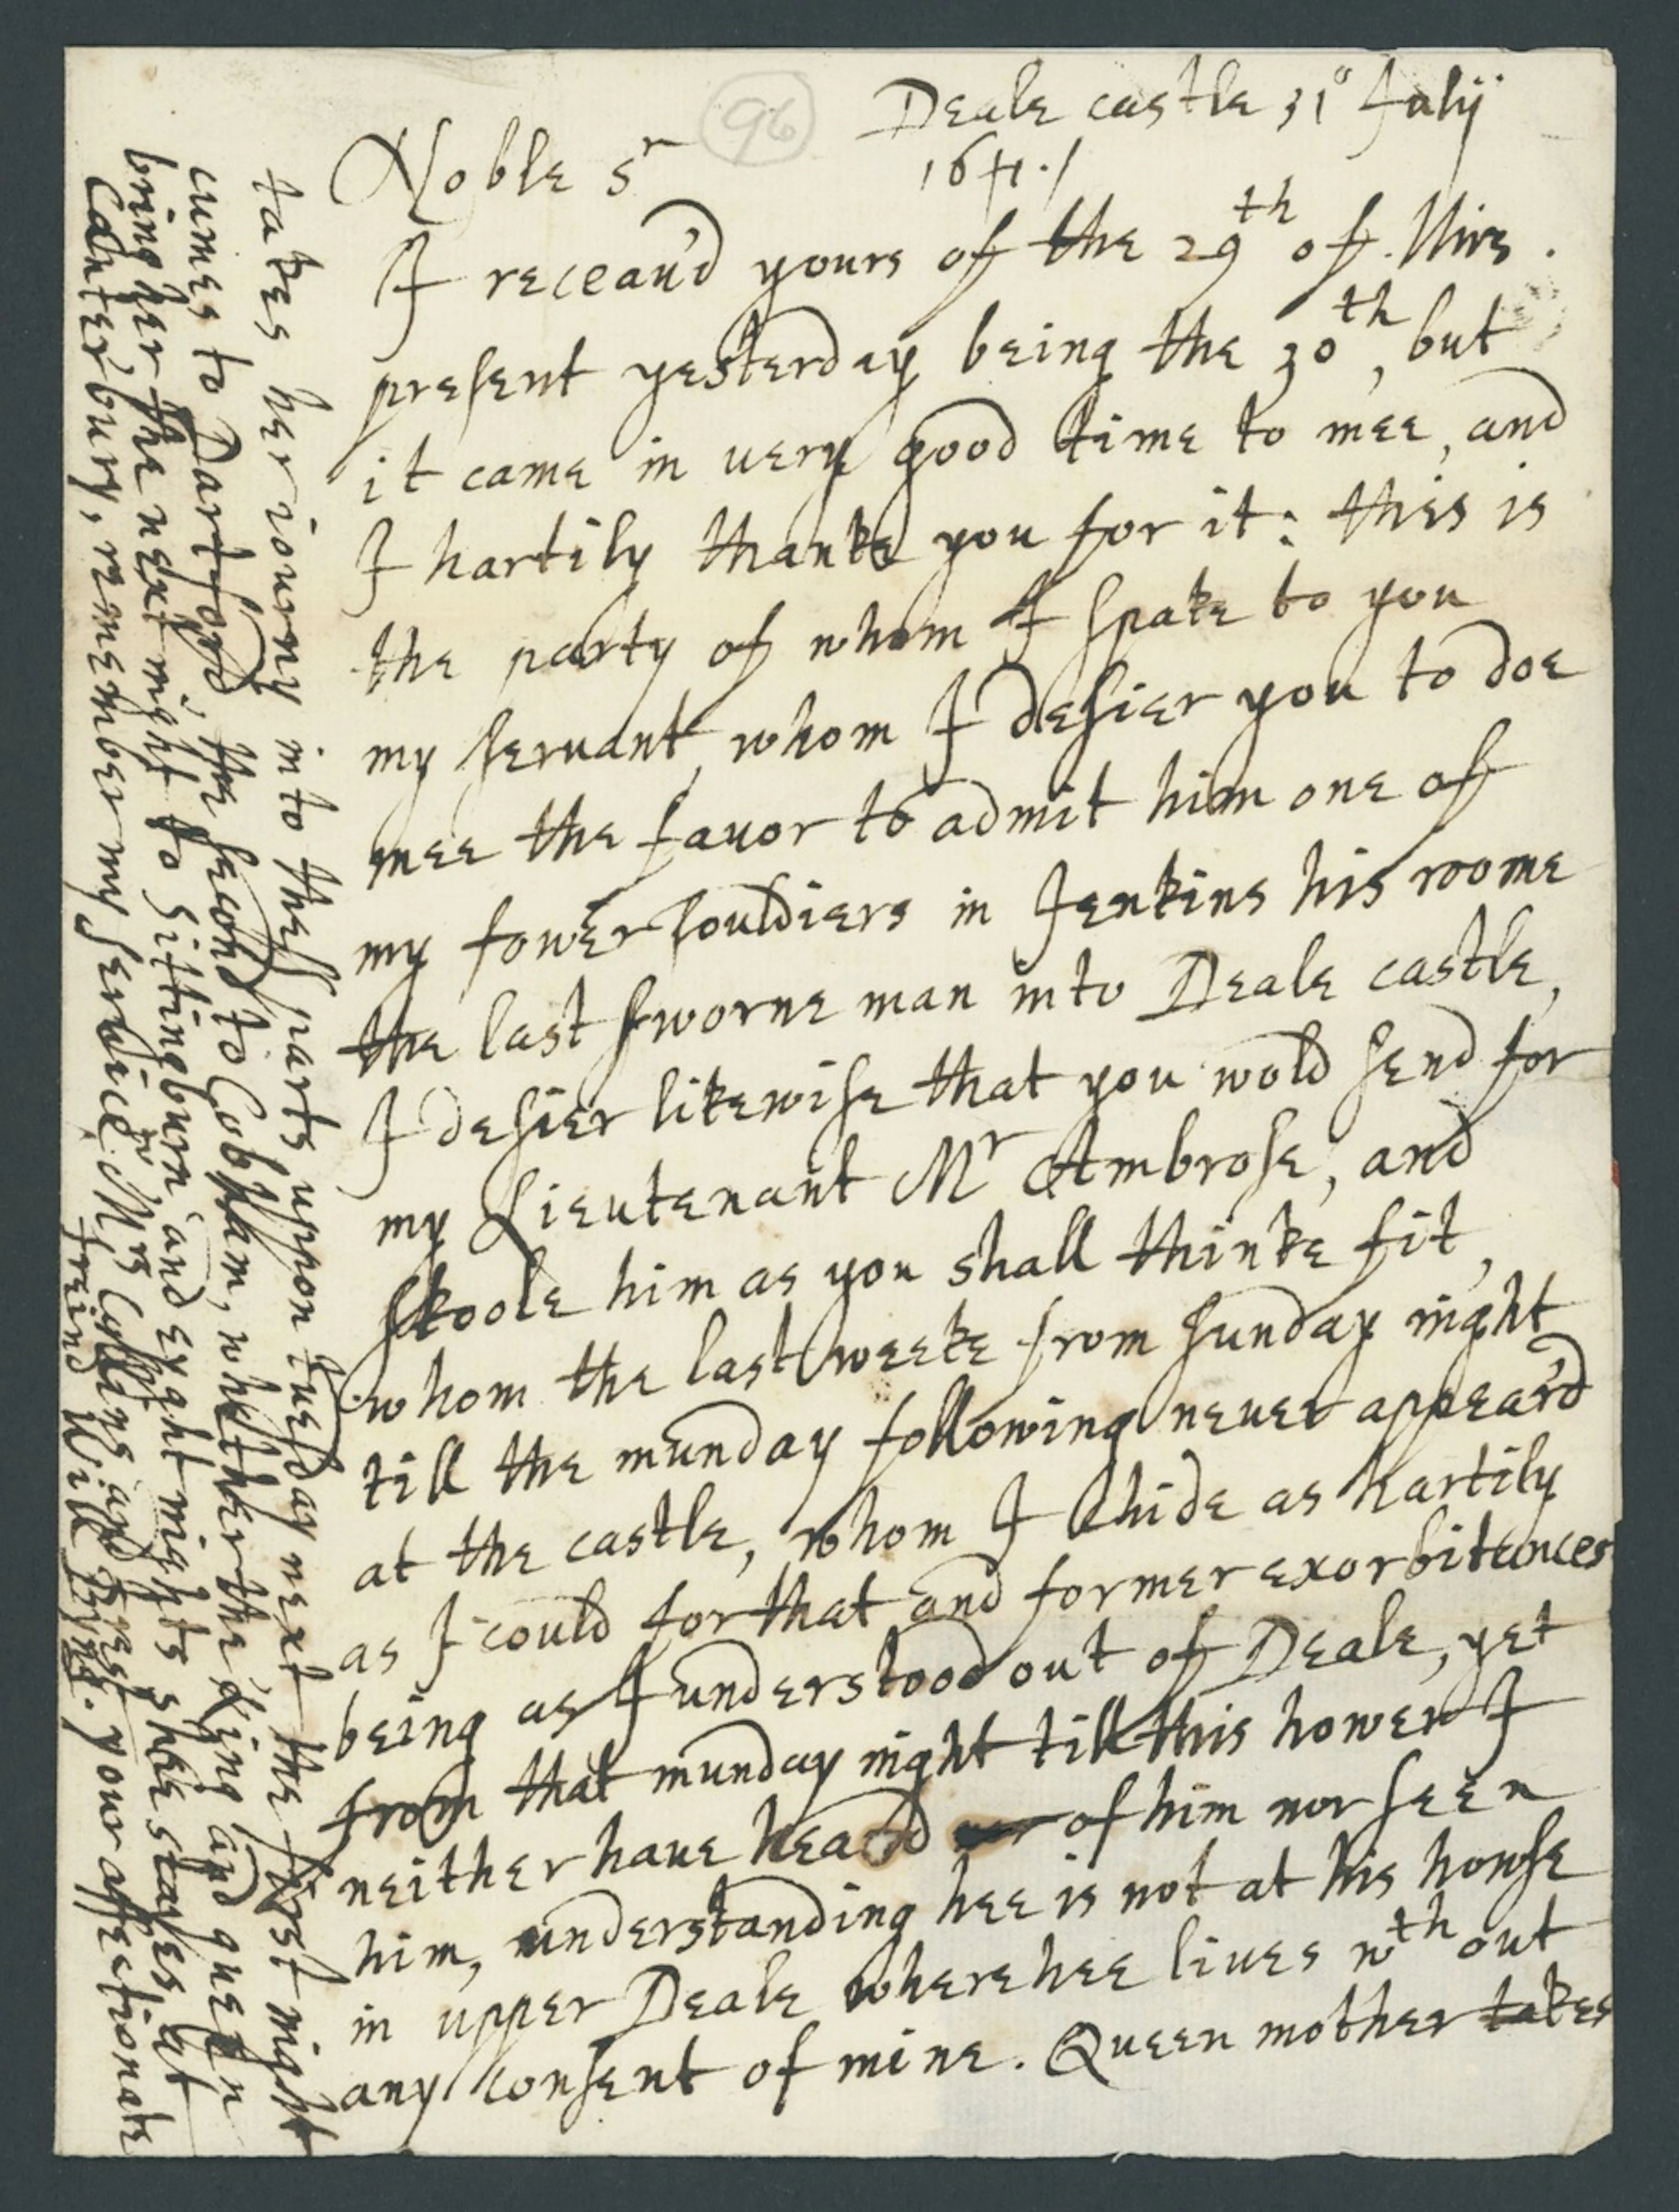 96
Deale castle 31° July
1641./
Noble Sr
I receau'd yours of the 29th of this
present yesterday being the 30th, but
it came in uery good time to mee, and
I hartily thanke you for it: this is
the party of whom I spake to you
my seruant, whom I desier you to doe
mee the fauor to admit him one of
my fower souldiers in Jenkins his roome
the last sworne man into Deale castle,
I desier likewise that you wold send for
my Lieutenant Mr Ambrose, and
skoole him as you shall thinke fit,
whom the last weeke from sunday night
till the munday following neuer appear'd
at the castle, whom I chide as hartily
as I could for that and former exorbitances
being as I understood out of Deale, yet
from that munday night till this hower I
neither haue heard of him nor seen
him, understanding hee is not at his house
in upper Deale where hee liues wth out
any consent of mine. Queen mother takes
takes her iourny into thes parts uppon tuesday next, the first night
cumes to Dartford, the second to Cobham, whether the King and queen
bring her the next night to Sittingburn, and eyght nights shee stayes at
Canterbury, remember my seruice to Mrs Cullens and rest your affectionate
freind Will Byng.